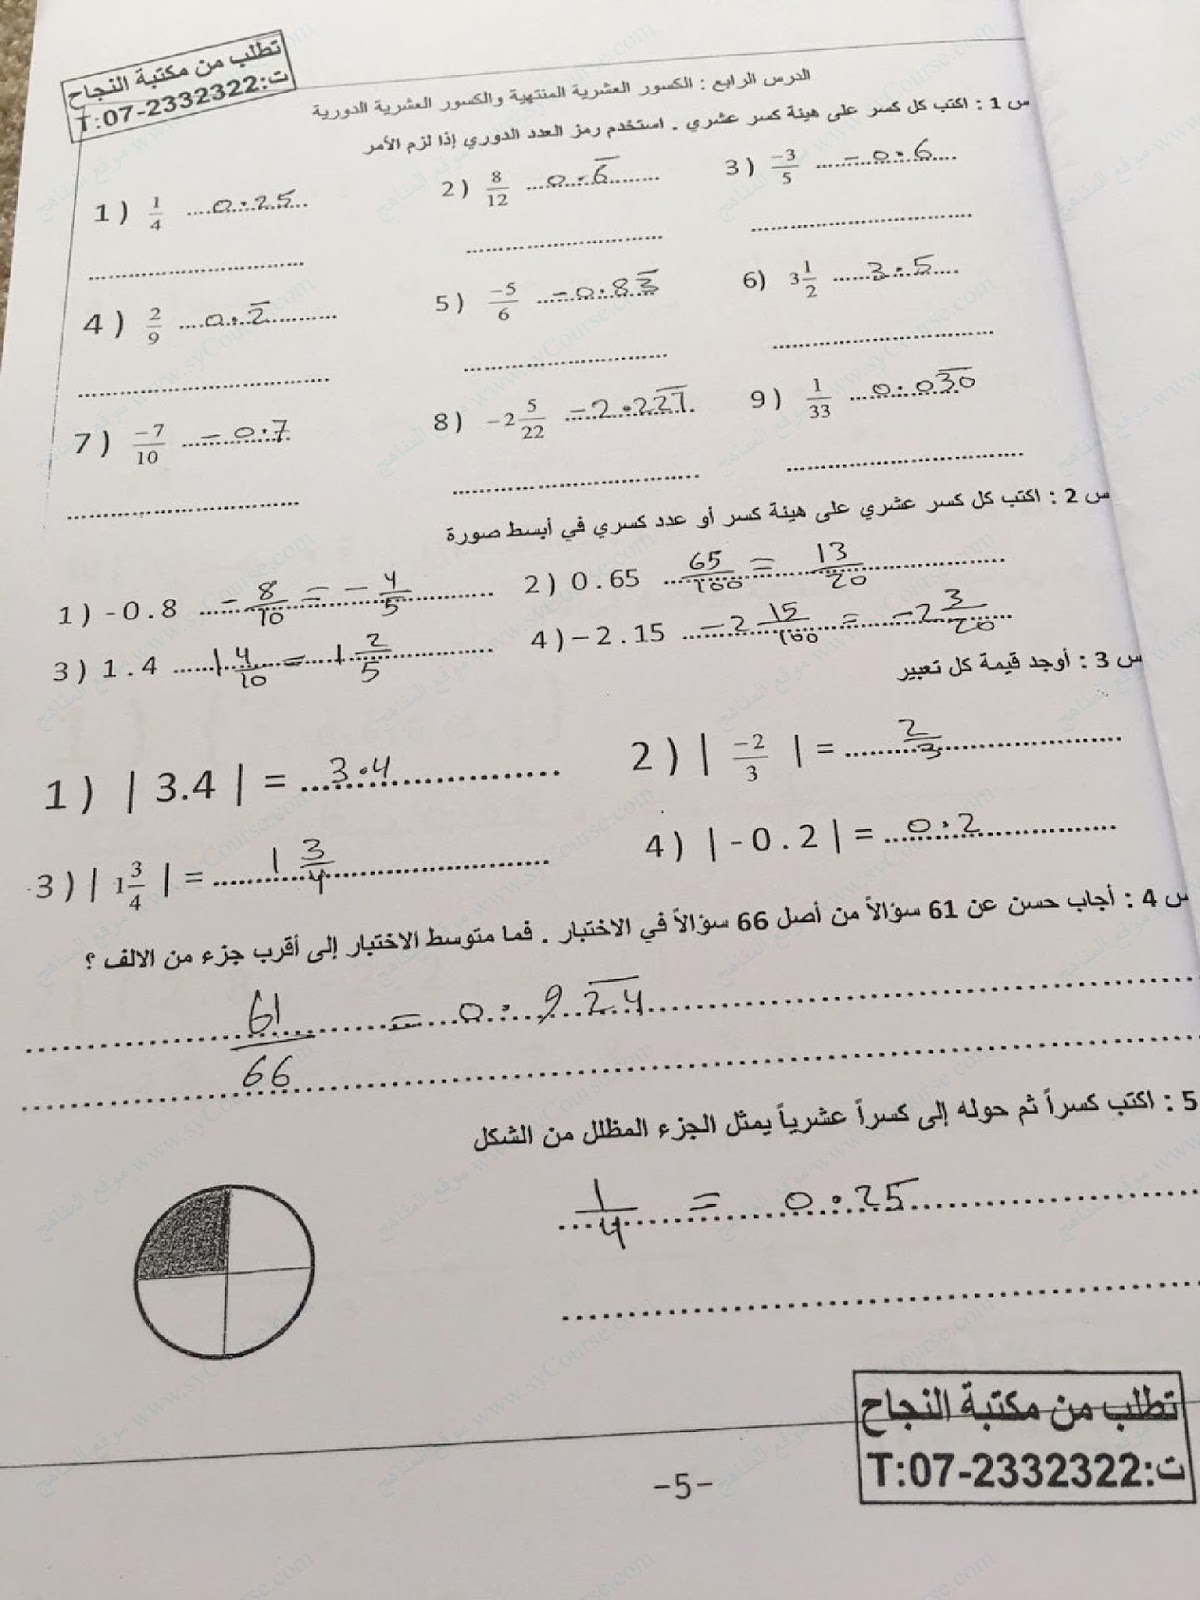 تطلب من مكتبة النجاح
ت:T:07-2332322
الدرس الرابع : الكسور العشرية المنتهية والكسور العشرية الدورية
س 1 : اكتب كل كسر على هيئة كسر عشري . استخدم رمز العدد الدوري إذا لزم الأمر
1) 1/4 0.25 2) 8/12 0.6̅ 3) -3/5 -0.6
4) 2/9 0.2̅ 5) -5/6 -0.83̅ 6) 3 1/2 3.5
7) -7/10 -0.7 8) -2 5/22 -2.22̅7̅ 9) 1/33 0.03̅0̅
س 2 : اكتب كل كسر عشري على هيئة كسر أو عدد كسري في أبسط صورة
1) -0.8 -8/10 = -4/5 2) 0.65 65/100 = 13/20
3) 1.4 1 4/10 = 1 2/5 4) -2.15 -2 15/100 = -2 3/20
س 3 : أوجد قيمة كل تعبير
1) | 3.4 | = 3.4 2) | -2/3 | = 2/3
3) | 1 3/4 | = 1 3/4 4) | -0.2 | = 0.2
س 4 : أجاب حسن عن 61 سؤالاً من أصل 66 سؤالاً في الاختبار . فما متوسط الاختبار إلى أقرب جزء من الالف ؟
61/66 = 0.92̅4̅
5 : اكتب كسراً ثم حوله إلى كسراً عشرياً يمثل الجزء المظلل من الشكل
1/4 = 0.25
تطلب من مكتبة النجاح
ت:T:07-2332322
-5-
موقع المناهج www.syCourse.com